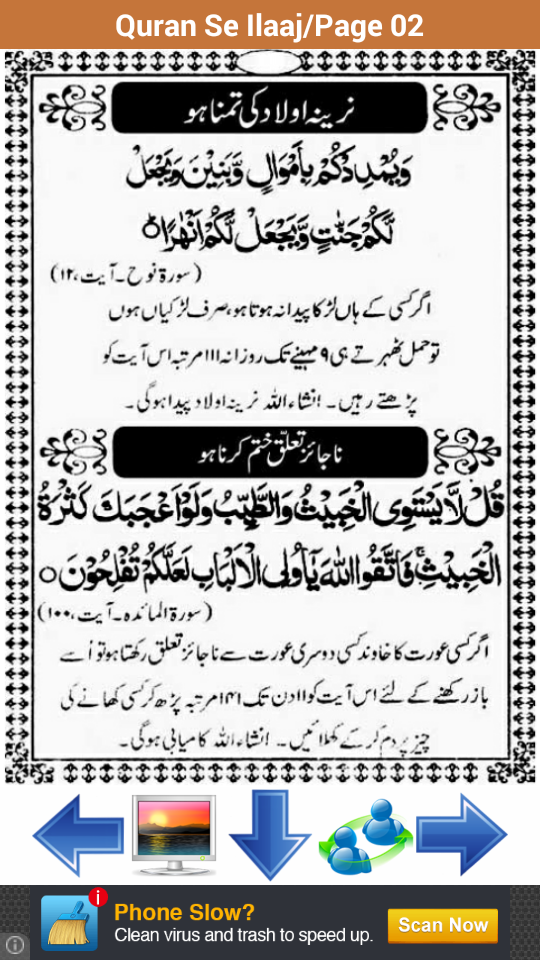 Quran Se Ilaaj/Page 02
نرینہ اولاد کی تمنا ہو
وَیُمْدِدْکُمْ بِاَمْوَالٍ وَّبَنِیْنَ وَیَجْعَلْ
لَّکُمْ جَنّٰتٍ وَّیَجْعَلْ لَّکُمْ اَنْھٰرًا ؕ
(سورۃ نوح۔ آیت، ۱۲)
اگر کسی کے ہاں لڑکا پیدا نہ ہوتا ہو، صرف لڑکیاں ہوں
تو حمل ٹھہرتے ہی ۹ مہینے تک روزانہ ۱۱۱ مرتبہ اس آیت کو
پڑھتے رہیں۔ انشاء اللہ نرینہ اولاد پیدا ہوگی۔
ناجائز تعلق ختم کرنا ہو
قُلْ لَّا یَسْتَوِی الْخَبِیْثُ وَالطَّیِّبُ وَلَوْ اَعْجَبَكَ کَثْرَةُ
الْخَبِیْثِ ۚ فَاتَّقُوا اللّٰہَ یٰۤاُولِی الْاَلْبَابِ لَعَلَّکُمْ تُفْلِحُوْنَ ○
(سورۃ المائدہ۔ آیت، ۱۰۰)
اگر کسی عورت کا خاوند کسی دوسری عورت سے ناجائز تعلق رکھتا ہو تو اُسے
باز رکھنے کے لئے اس آیت کو ۱۱ دن تک ۱۴۱ مرتبہ پڑھ کر کسی کھانے کی
چیز پر دم کر کے کھلائیں۔ انشاء اللہ کامیابی ہوگی۔
Phone Slow?
Clean virus and trash to speed up.
Scan Now